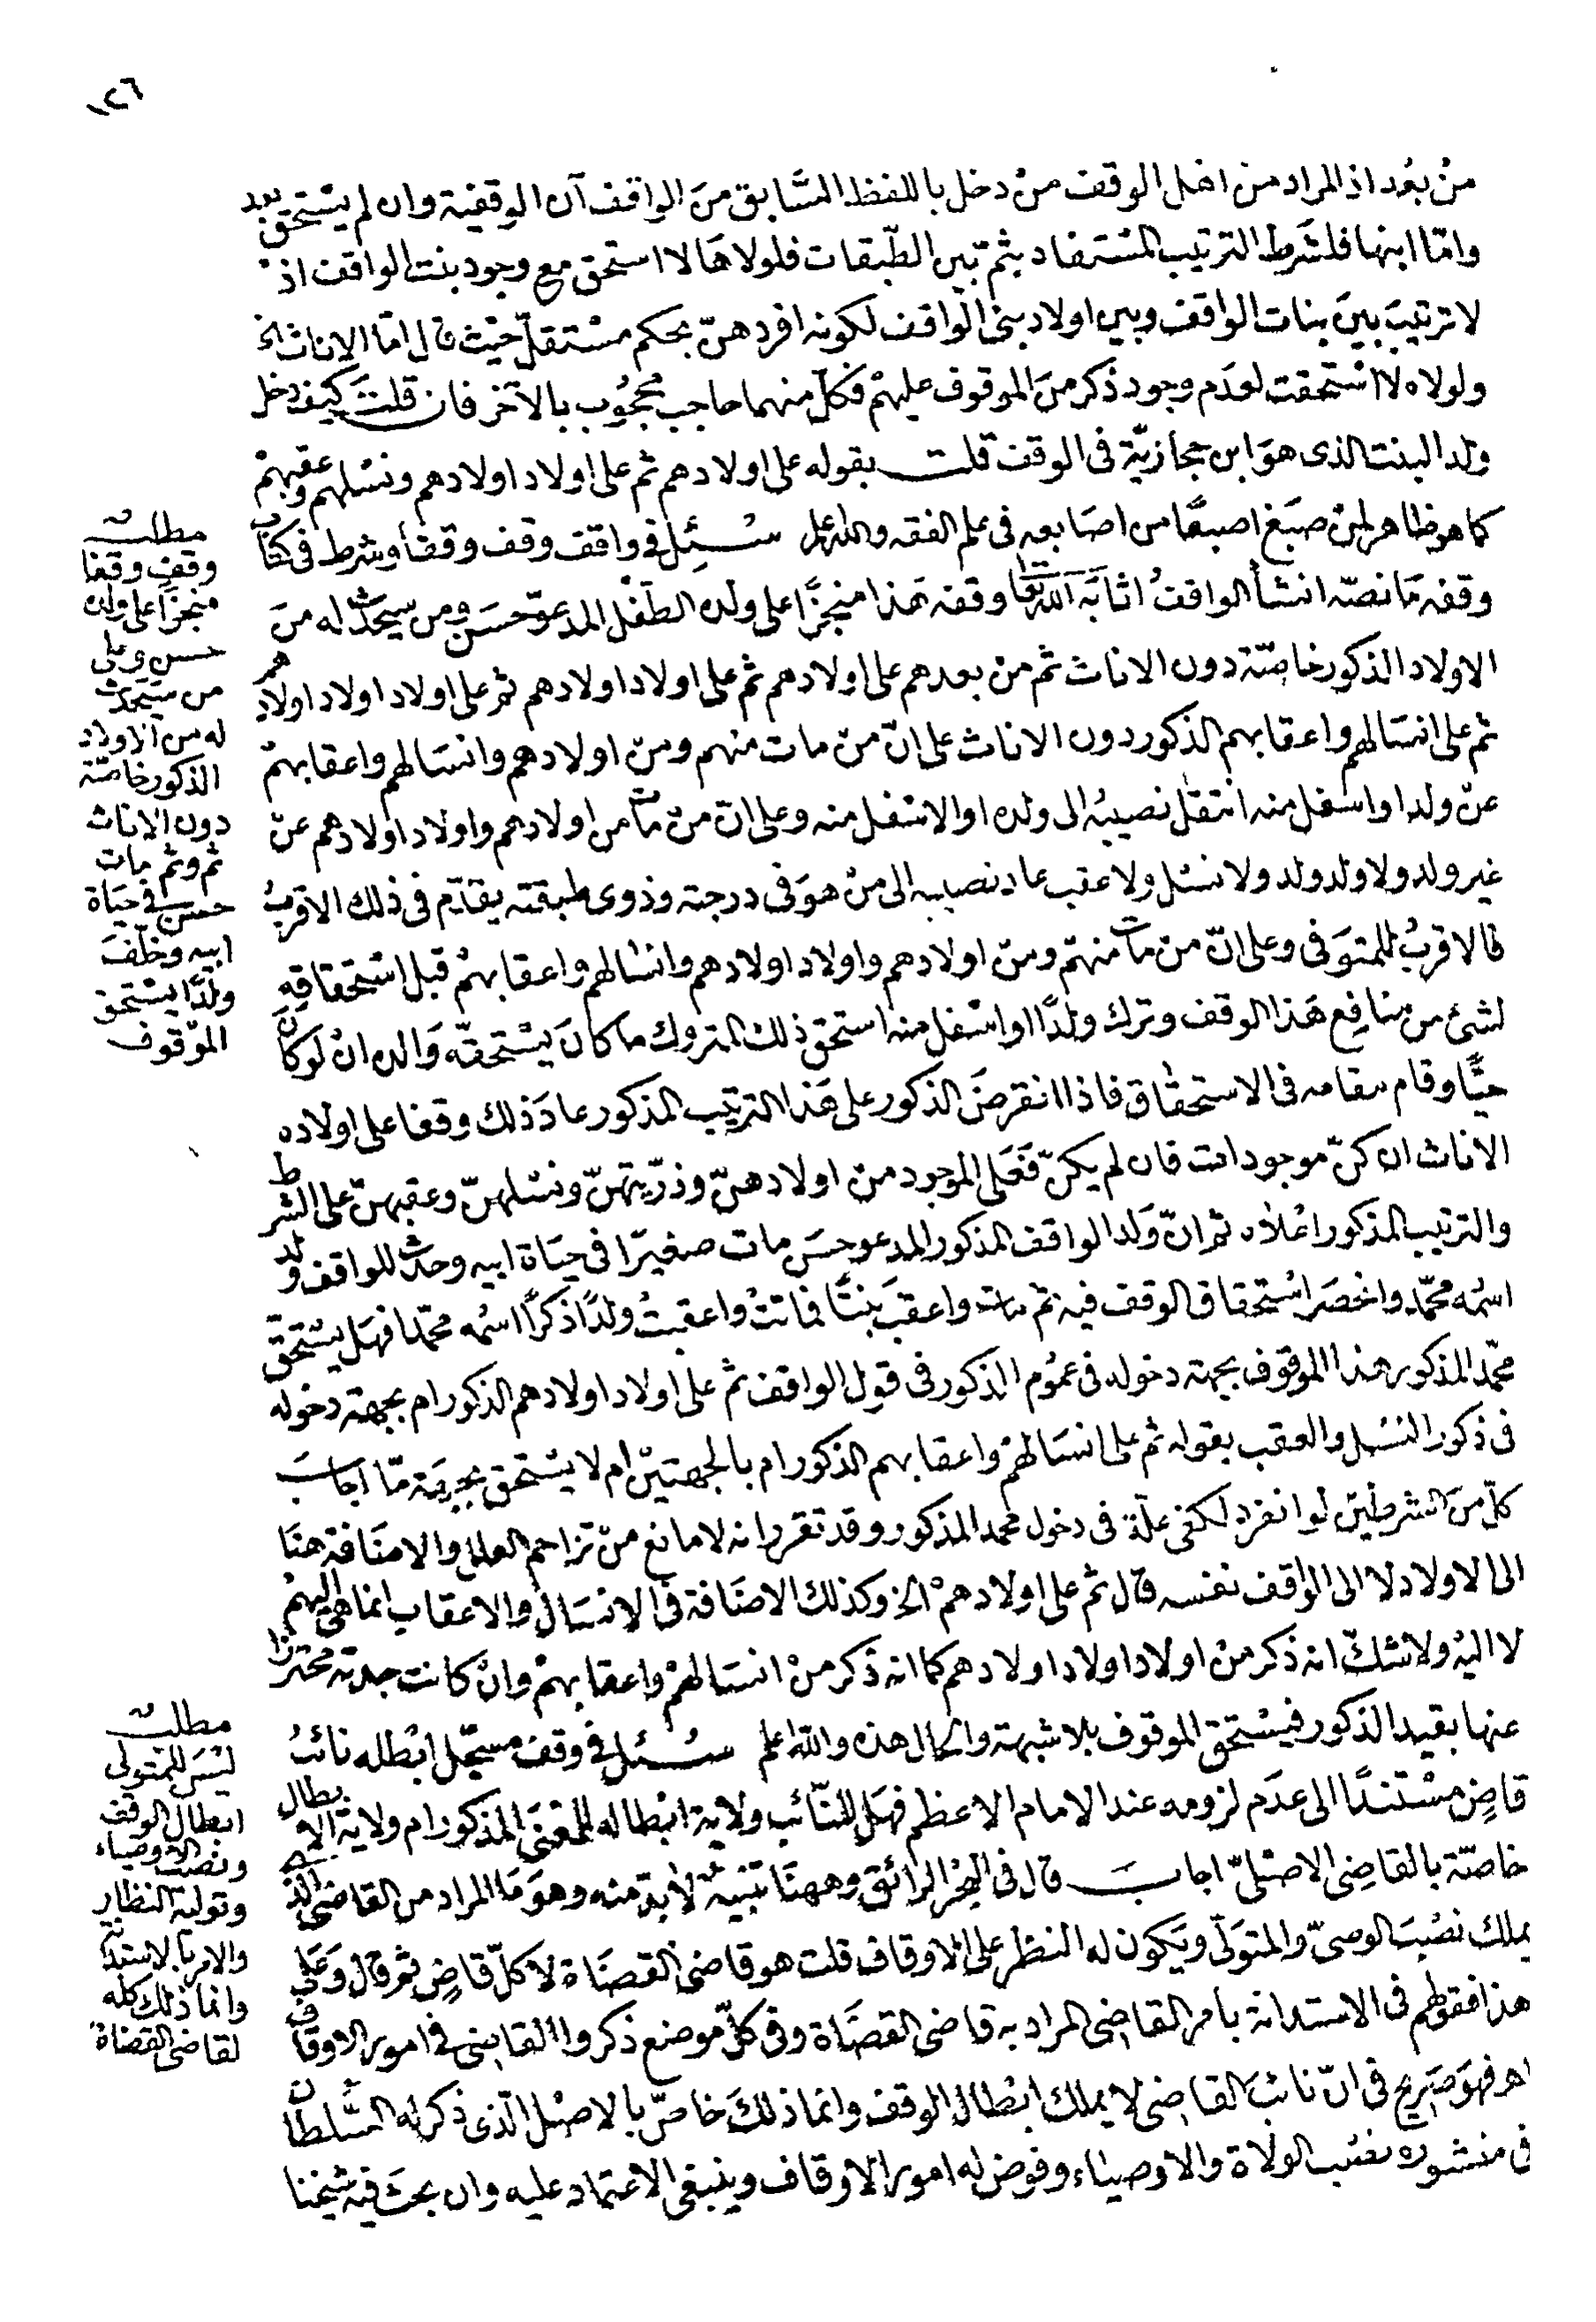 ١٢٦
من بعد اذ المراد من اهل الوقف من دخل باللفظ السّابق من الواقف آن الوقفية وان لم يستحق بعد
وامّا ابنها فلشرط الترتيب المستفاد بثم بين الطّبقات فلولا هَا لا استحق مع وجود بنت الواقف اذ
لا ترتيبَ بينَ بنات الواقف وبين اولاد بنى الواقف لكونه افردهنّ بحكم مستقلّ حيْث قال امّا الاناث الخ
ولولاه لا استحقت لعدَم وجود ذكر منَ الموقوف عليهمْ فكلّ منهما حاجب محجُوب بالآخر فان قلتَ كيف دخل
ولد البنت الذى هوَ ابن حجازيّة فى الوقف قلت بقوله على اولادهم ثم على اولاد اولادهم ونسْلهم وعقبهمْ
كما هو ظاهر لمنْ صبَغ اصبعًا من اصَابعه فى علم الفقه والله اعلم سُئِل فى واقف وقف وقفاً وشرط فى كتاب
وقفه مَا نصّه انشأ الواقفُ اثابَه الله تعالى وقفه هَذا منجزًا على ولده الطفْل المدعوّ حسَن ومن سيحدث له منَ
الاولاد الذكور خاصّة دون الاناث ثم من بعدهم على اولادهم ثم على اولاد اولادهم ثم على اولاد اولاد اولادهم
ثم على انسَالهم واعقابهم الذكور دون الاناث على انّ منْ مات منهم ومنْ اولادهم وانسَالهم واعقابهمْ
عنْ ولد او اسْفل منه انتقل نصيبُه الى ولده او الاسْفل منه وعلى ان منْ مات من اولادهم واولاد اولادهم عنْ
غير ولد ولا ولد ولد ولا نسْل ولا عقب عاد نصيبه الى منْ هوَ فى درجته وذوى طبقته يقدّم فى ذلك الاقربُ
فالاقربُ للمتوَفى وعلى انّ منْ مات منهمْ ومنْ اولادهم واولاد اولادهم وانسَالهم واعقابهمْ قبل اسْتحقاقه
لشئ من منافع هَذا الوقف وترك ولدًا او اسْفل منه استحق ذلك المتروك ما كانَ يسْتحقّه وَالده انْ لوكانَ
حيًّا وقام مقامه فى الاستحقاق فاذا انقرضَ الذكور على هَذا الترتيب المذكور عادَ ذلك وقفا على اولاده
الاناث ان كنّ موجودات فان لم يكنّ فَعَلى الموجود منْ اولادهنّ وذرّيتهنّ ونسْلهنّ وعقبهنّ على الشرط
والترتيب المذكور اعْلاه ثم انّ وَلد الواقف المذكور المدعو حسَن مات صغيرًا فى حيَاة ابيه وحدث للواقف ولد
اسمُه محمّد وانحصَر اسْتحقاق الوقف فيه ثم مات واعقبَ بنتًا فماتتْ واعقبتْ ولدًا ذكرًا اسمُه محمّد فهَل يسْتحقّ
محمّد المذكور هذا الموقوف بجهة دخوله فى عمُوم الذكور فى قول الواقف ثم على اولاد اولادهم الذكور ام بجهة دخوله
فى ذكور النسْل والعقب بقوله ثم على انسَالهمْ واعقابهم الذكور ام بالجهتيْن ام لا يسْتحق بجهة مّا اجابَ
كلّ منَ الشرطيْن لو انفرد لكفى علّة فى دخول محمد المذكور وقد تقرر انه لا مانع منْ تزاحم العلل والاضَافة هنَا
الى الاولاد لا الى الواقف نفسه قال ثم على اولادهمْ الخ وكذلك الاضَافة فى الانسَال والاعقاب انما هى اليهمْ
لا اليْه ولا شكّ انه ذكر منْ اولاد اولاد اولادهم كما انه ذكر منْ انسَالهمْ واعقابهمْ وانْ كانت جدته محترزا
عنها بقيد الذكور فيسْتحق الموقوف بلا شبهة والحال هذه والله اعلم سُئل فى وقف مسجّل ابْطله نائبُ
قاضٍ مسْتندًا الى عدَم لزومه عند الامام الاعظم فهَل للنّائب ولاية ابْطاله للمعْنَى المذكور ام ولاية الابطال
خاصّة بالقاضِى الاصْلىّ اجابَ قال فى البحْر الرائق وههنَا تنبيهٌ لابدّ منه وهوَ مَا المراد من القاضى الذى
يملك نصْبَ الوصىّ والمتوَلّى ويَكون له النظر على الاوقاف قلت هو قاضى القضَاة لا كلّ قاضٍ ثم قال وَعَلى
هذا فقولهم فى الاستدانة بامر القاضى المراد به قاضى القضَاة وفى كلّ موضع ذكروا القاضى فى امور الاوقاف
اهـ فهوَ صَريح فى انّ نائبَ القاضى لا يملك ابْطال الوقف وانما ذلكَ خاصّ بالاصْل الّذى ذكر له السّلطان
فى منشوره نصْب الولاة والاوصيَاء وفوض له امور الاوقاف وينبغى الاعتماد عليه وان بحثَ فيه شيْخنا
مطلب
وقف وقفا
منجزًا على ولده
حسن وعلى
من سيَحدث
له من الاولاد
الذكور خاصّة
دون الاناث
ثم وثم مات
حسن فى حيَاة
ابيه وخلّفَ
ولدًا يسْتحق
الموْقوف
مطلب
ليْسَ للمتولى
ابطال الوقف
ونصب الاوصياء
وتولية النظار
والامر بالاستدانة
وانما ذلك كله
لقاضى القضاة